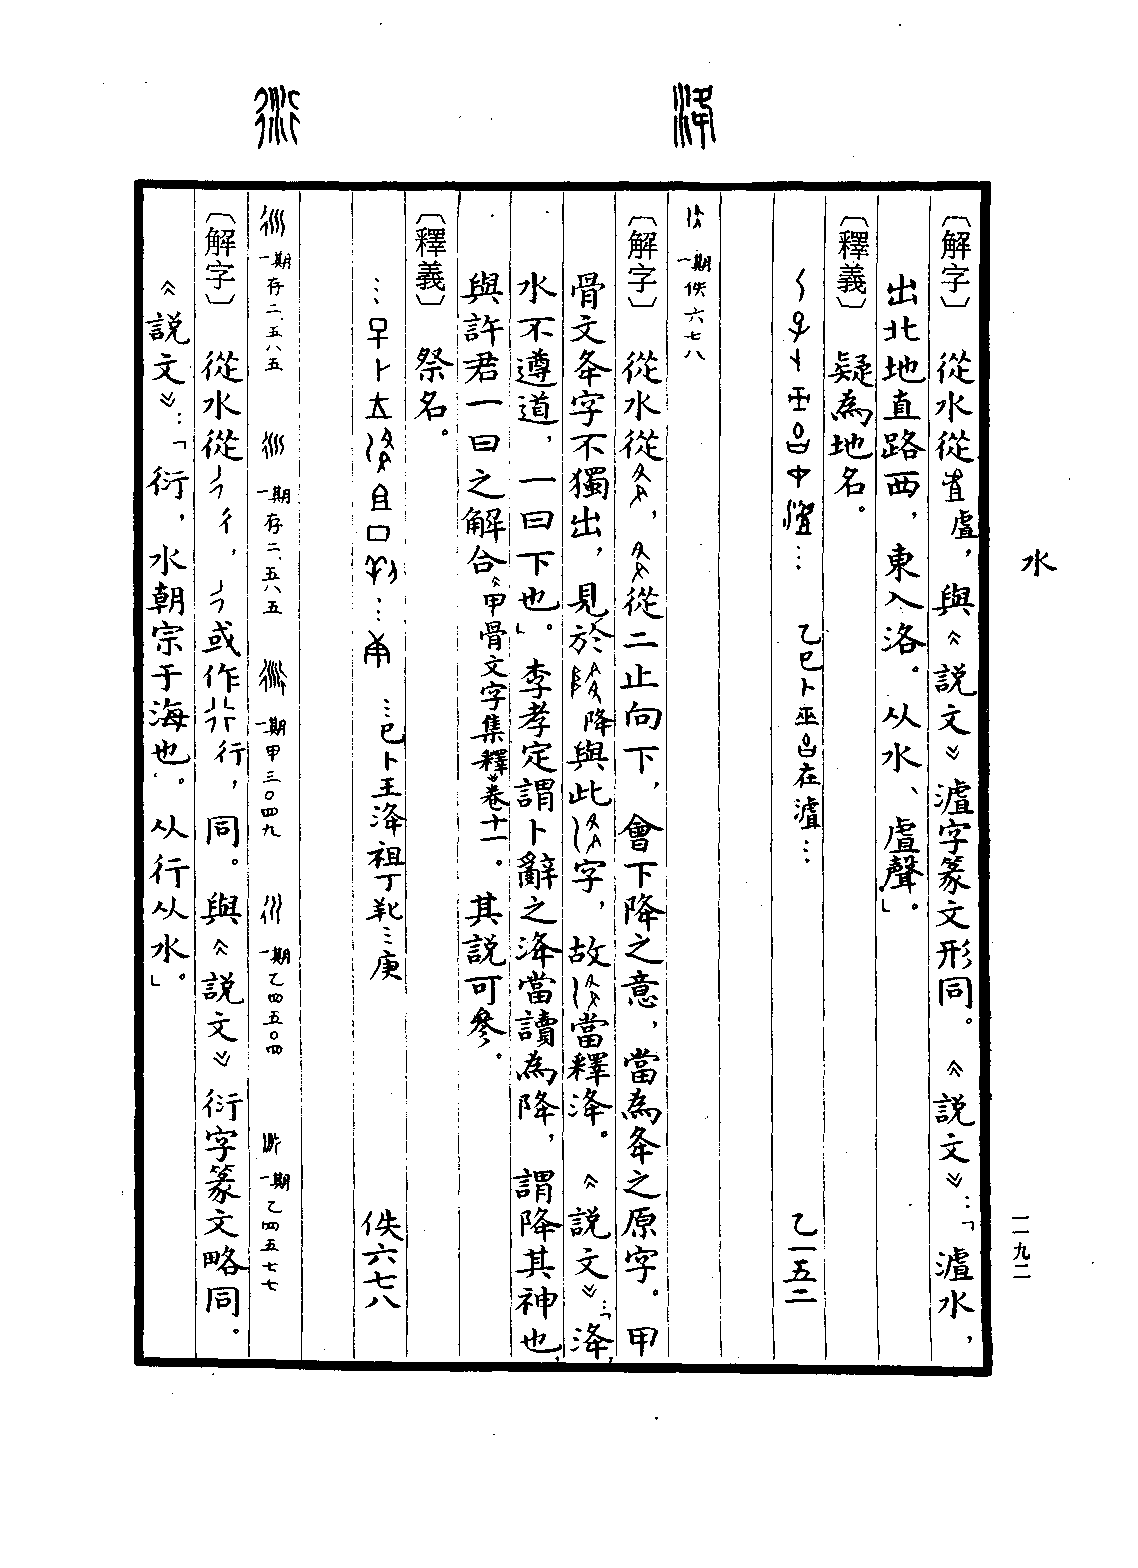 水
一一九二
〔解字〕 從水從盧,與《說文》瀘字篆文形同。《說文》:「瀘水,
出北地直路西,東入洛。从水、盧聲。」
〔釋義〕 疑為地名。
乙巳卜巫㠯在瀘… 乙一五二
洚
一期佚六七八
〔解字〕 從水從,從二止向下,會下降之意,當為夅之原字。甲
骨文夅字不獨出,見於降與此字,故當釋洚。《說文》:「洚,
水不遵道,一曰下也。」李孝定謂卜辭之洚當讀為降,謂降其神也,
與許君一曰之解合《甲骨文字集釋》卷十一。其說可參。
〔釋義〕 祭名。
…巳卜王洚祖丁…庚 佚六七八
衍
一期存二、五八五 一期存二、五八五 一期甲三〇四九 一期乙四五〇四 一期乙四五七七
〔解字〕 從水從彳,或作行,同。與《說文》衍字篆文略同。
《說文》:「衍,水朝宗于海也。从行从水。」